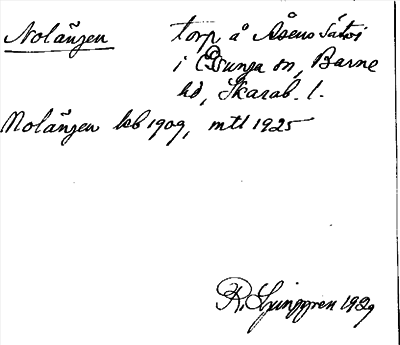 Nolängen torp å Åsens
i Essunga sn, Barne
hd, Skarab. l.
Nolängen kb 1909, mtl 1925
R. Ljunggren 1929